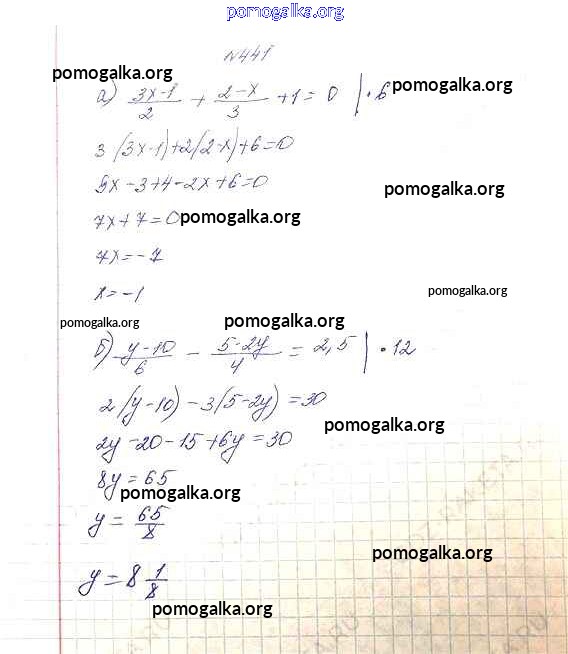 pomogalka.org
N441
pomogalka.org
а) (3x-1)/2 + (2-x)/3 + 1 = 0 | · 6 pomogalka.org
3(3x-1)+2(2-x)+6=0
9x-3+4-2x+6=0 pomogalka.org
7x+7=0 pomogalka.org
7x=-7
x=-1 pomogalka.org
pomogalka.org pomogalka.org
б) (y-10)/6 - (5-2y)/4 = 2,5 | · 12
2(y-10)-3(5-2y)=30
pomogalka.org
2y-20-15+6y=30
8y=65
pomogalka.org
y = 65/8
pomogalka.org
y = 8 1/8
pomogalka.org